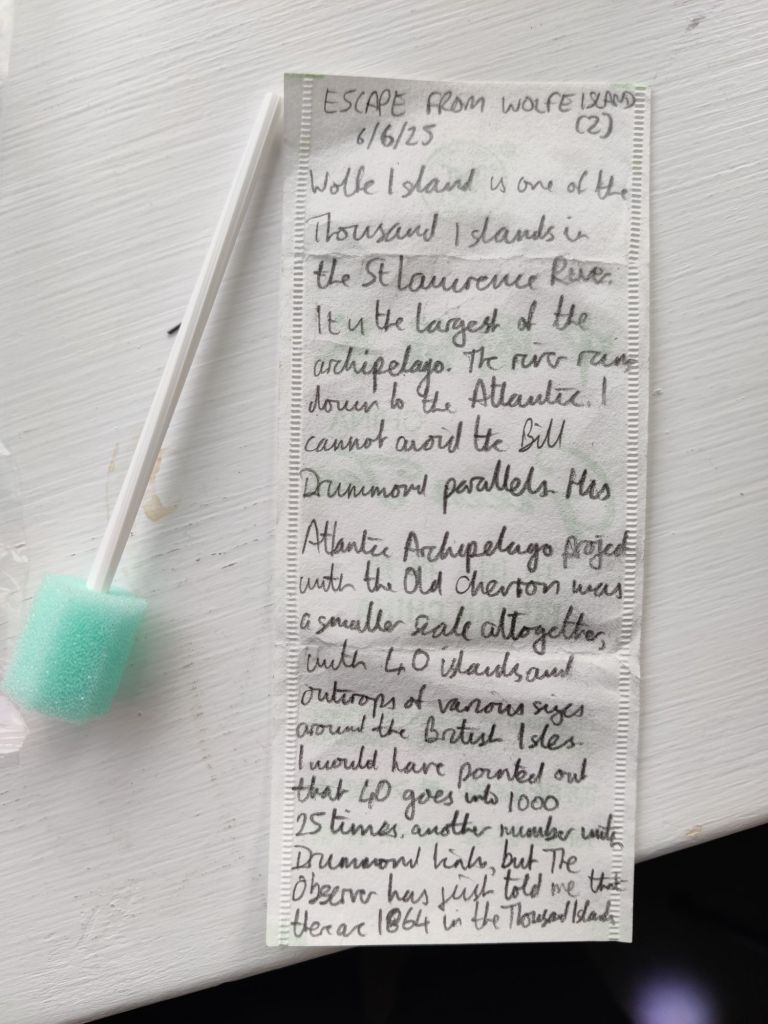 ESCAPE FROM WOLFE ISLAND
6/6/25 (2)
Wolfe Island is one of the
Thousand Islands in
the St Lawrence River.
It is the largest of the
archipelago. The river runs
down to the Atlantic. I
cannot avoid the Bill
Drummond parallels. His
Atlantic Archipelago project
with the Old chevron was
a smaller scale altogether,
with 40 islands and
outcrops of various sizes
around the British Isles.
I would have pointed out
that 40 goes into 1000
25 times, another number with
Drummond links, but The
Observer has just told me that
there are 1864 in the Thousand Islands